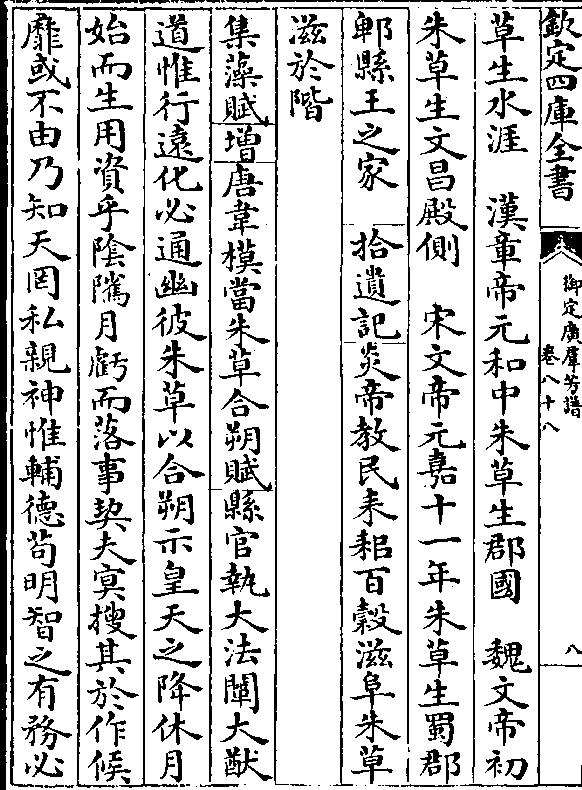 欽定四庫全書
御定廣羣芳譜
卷八十八
八
草生水涯　漢章帝元和中朱草生郡國　魏文帝初
朱草生文昌殿側　宋文帝元嘉十一年朱草生蜀郡
郫縣王之家　拾遺記炎帝教民耒耜百穀滋阜朱草
滋於階
集藻賦增唐韋模當朱草合朔賦縣官執大法闡大猷
道惟行遠化必通幽彼朱草以合朔示皇天之降休月
始而生用資乎陰隲月虧而落事契夫冥搜其於作候
靡或不由乃知天罔私親神惟輔德苟明智之有務必